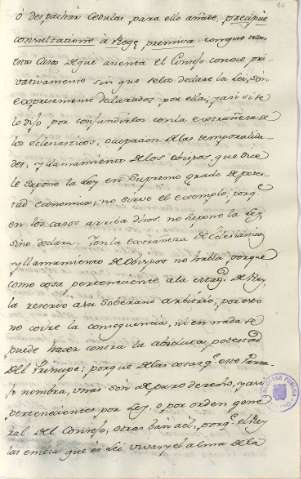 ó despachar Cedulas, para ello añade, precipue
consultatione à Rege premissa, conque
Casos de que asienta el Consejo conoce pri-
vativamente sin que se los declare la Ley, son
expresamente declarados por ella, y asi si se
lo dijo por confundirlos con la extrañeza de
los eclesiasticos, ocupacion de las temporalida-
des, y llamamiento de los Obispos, que dice
le supone la Ley en supremo grado de potes-
tad economica, no sirve el exemplo, porq.e
en los casos arriba dichos no supone la Ley,
sino declara. Con la extrañeza de Eclesiasticos
y llamamiento de Obispos no habla, porque
como cosa perteneciente a la del Rey,
la reservó a su Soberano arbitrio, por eso
no corre la consequencia, ni en nada se
puede hacer contra la absoluta potestad
del Principe; porque de las cosas q.e este
nombra, unas son de puro derecho, y asi
pertenecientes por Ley, o por orden gene-
ral del Consejo, otras porq.e el Rey
las que es Ley viva, y el alma de la